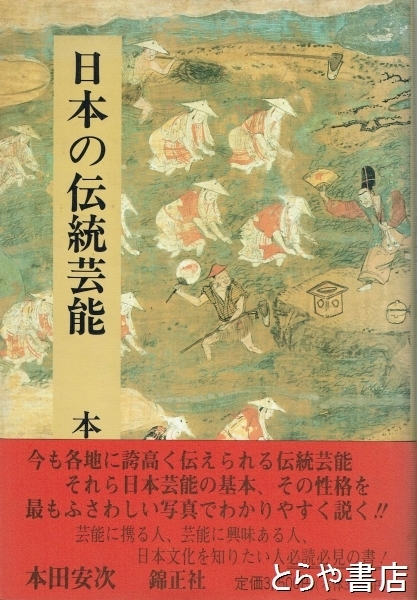 日本の伝統芸能
本
今も各地に誇高く伝えられる伝統芸能
それら日本芸能の基本、その性格を
最もふさわしい写真でわかりやすく説く!!
芸能に携る人、芸能に興味ある人、
日本文化を知りたい人必読必見の書!
本田安次 錦正社 定価3
とらや書店